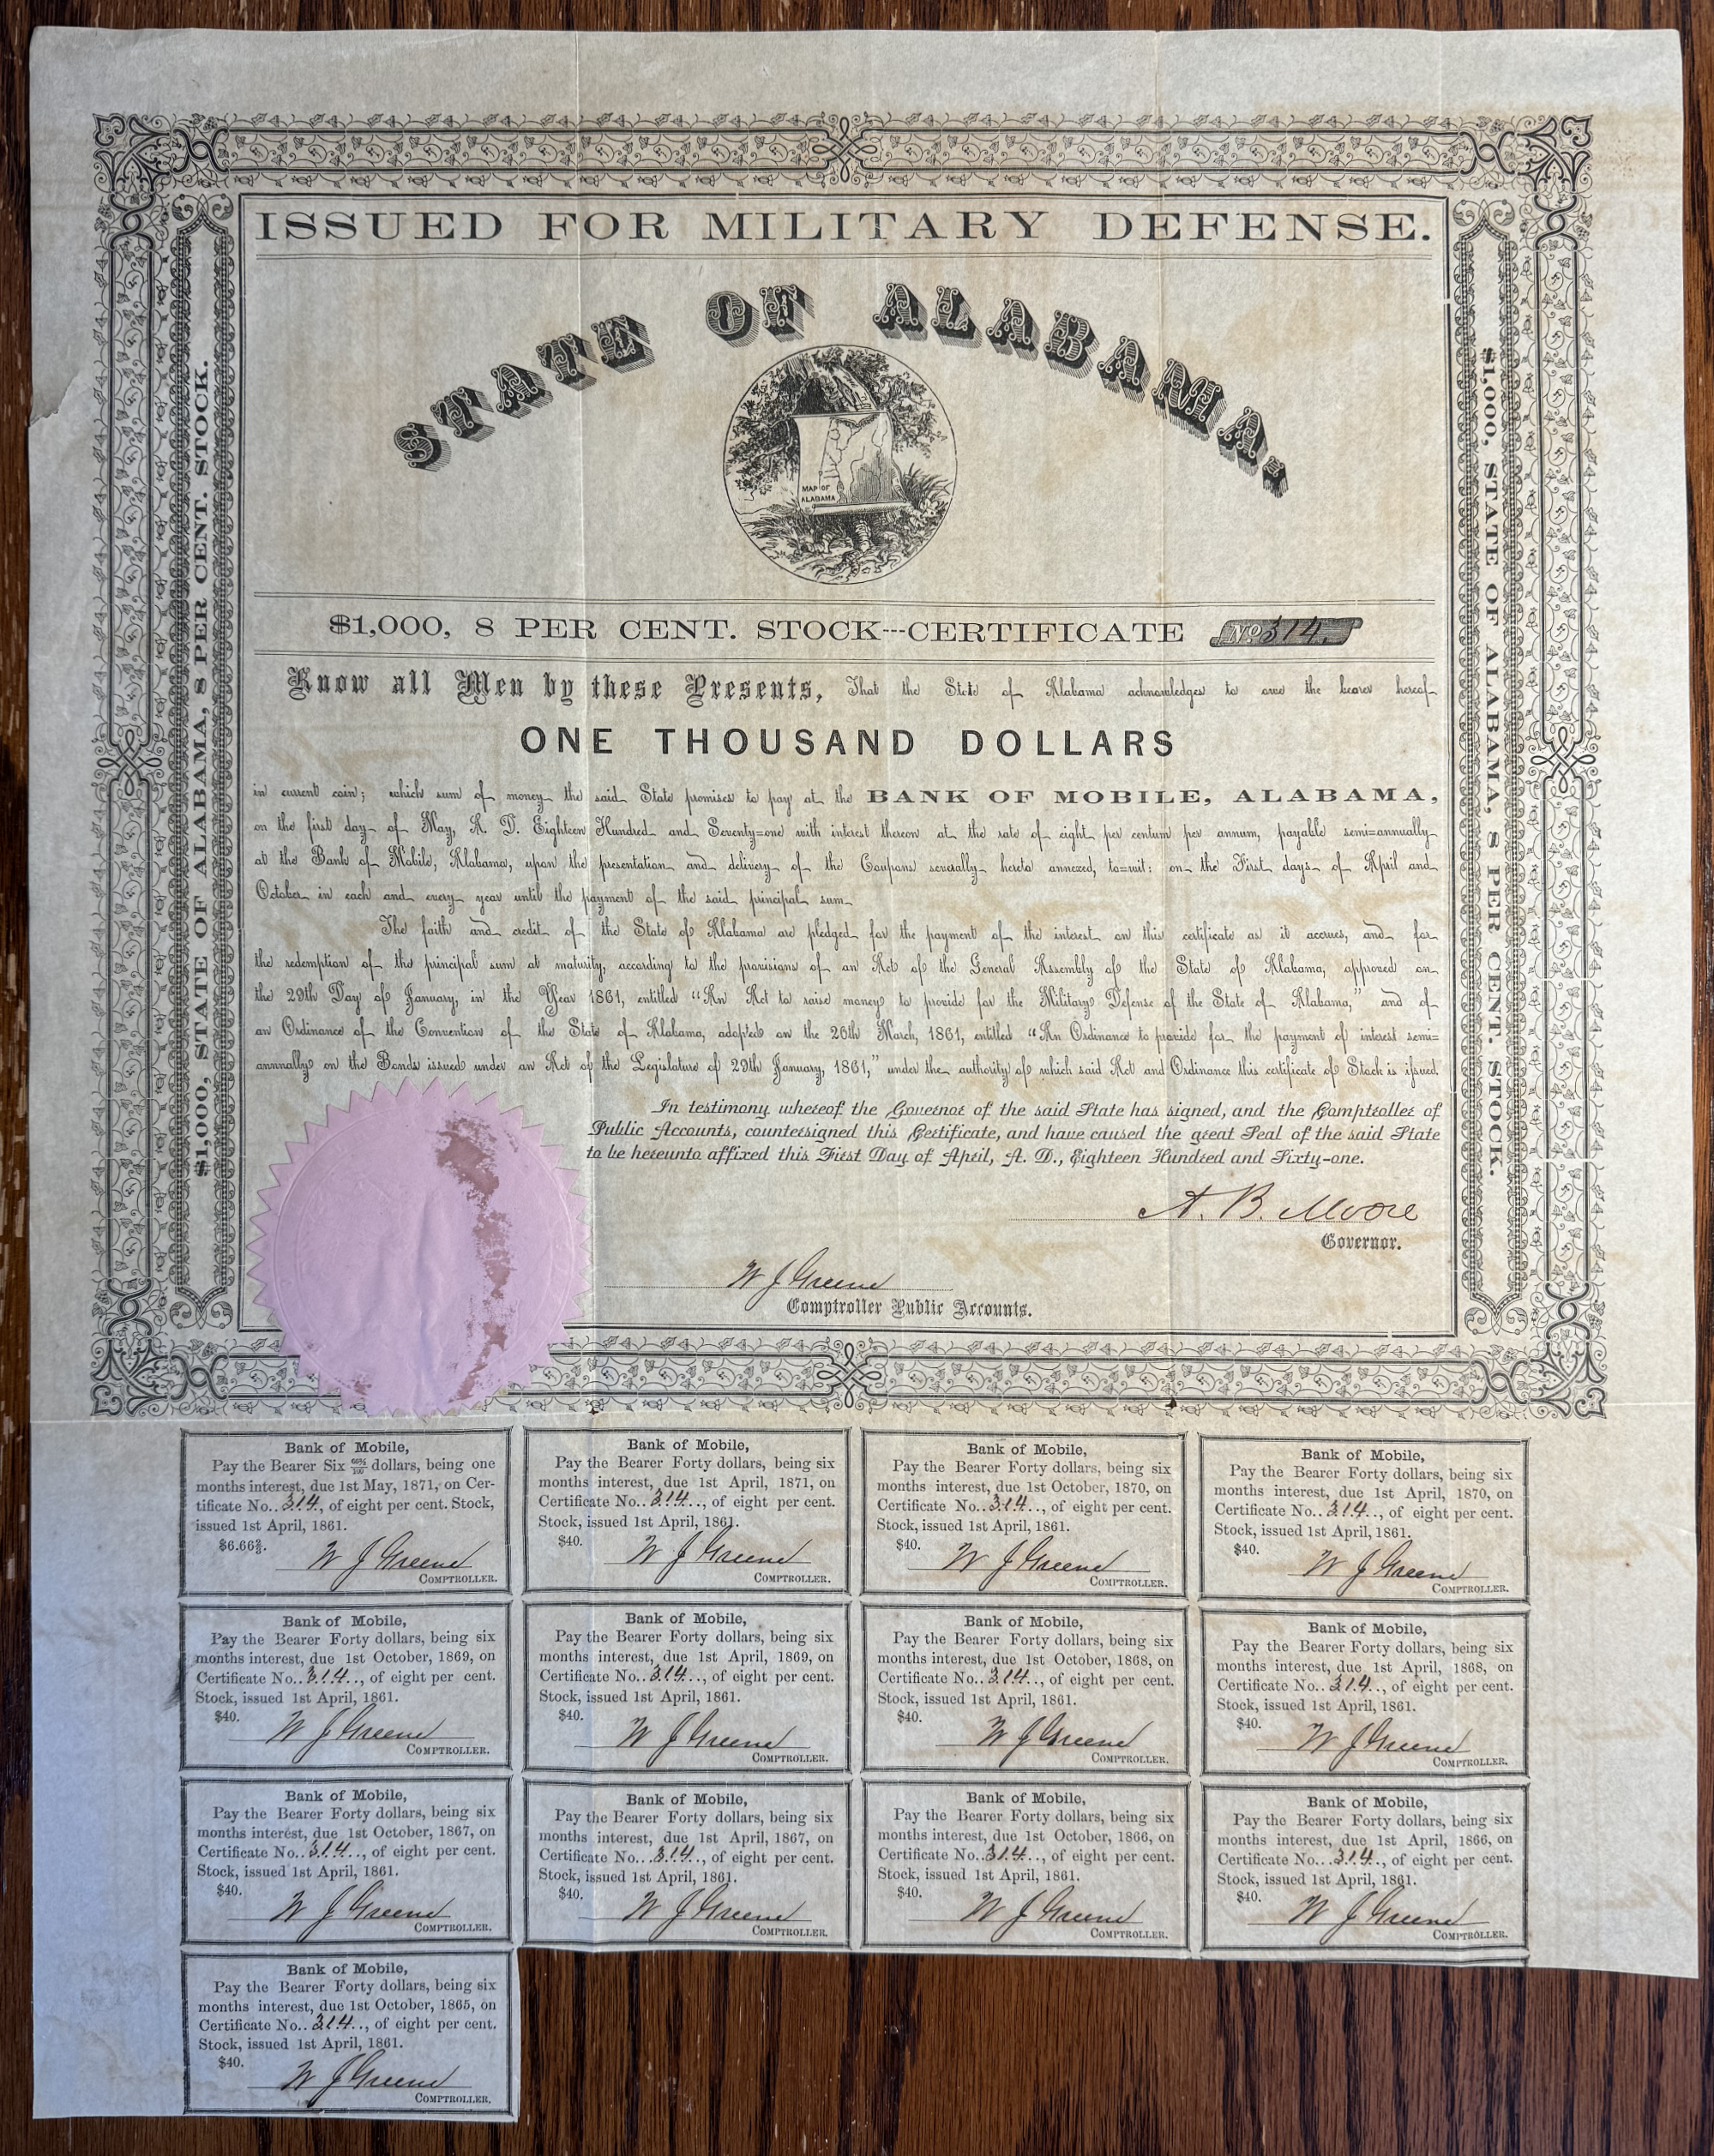 ISSUED FOR MILITARY DEFENSE.
STATE OF ALABAMA,
MAP OF
ALABAMA
$1,000, STATE OF ALABAMA, 8 PER CENT. STOCK.
$1,000, STATE OF ALABAMA, 8 PER CENT. STOCK.
$1,000, 8 PER CENT. STOCK---CERTIFICATE No 314.
Know all Men by these Presents, That the State of Alabama acknowledges to owe the bearer hereof
ONE THOUSAND DOLLARS
in current coin; which sum of money the said State promises to pay at the BANK OF MOBILE, ALABAMA,
on the first day of May, A. D. Eighteen Hundred and Seventy=one with interest thereon at the rate of eight per centum per annum, payable semi=annually
at the Bank of Mobile, Alabama, upon the presentation and delivery of the Coupons severally hereto annexed, to=wit: on the First days of April and
October in each and every year until the payment of the said principal sum.
The faith and credit of the State of Alabama are pledged for the payment of the interest on this certificate as it accrues, and for
the redemption of the principal sum at maturity, according to the provisions of an Act of the General Assembly of the State of Alabama, approved on
the 29th Day of January, in the Year 1861, entitled "An Act to raise money to provide for the Military Defense of the State of Alabama," and of
an Ordinance of the Convention of the State of Alabama, adopted on the 26th March, 1861, entitled "An Ordinance to provide for the payment of interest semi=
annually on the Bonds issued under an Act of the Legislature of 29th January, 1861," under the authority of which said Act and Ordinance this certificate of Stock is issued.
In testimony whereof the Governor of the said State has signed, and the Comptroller of
Public Accounts, countersigned this Certificate, and have caused the great Seal of the said State
to be hereunto affixed this First Day of April, A. D., Eighteen Hundred and Sixty-one.
A. B. Moore
Governor.
W J Greene
Comptroller Public Accounts.
Bank of Mobile,
Pay the Bearer Six 66⅔/100 dollars, being one
months interest, due 1st May, 1871, on Cer-
tificate No..314., of eight per cent. Stock,
issued 1st April, 1861.
$6.66⅔.
W J Greene
COMPTROLLER.
Bank of Mobile,
Pay the Bearer Forty dollars, being six
months interest, due 1st April, 1871, on
Certificate No..314.., of eight per cent.
Stock, issued 1st April, 1861.
$40.
W J Greene
COMPTROLLER.
Bank of Mobile,
Pay the Bearer Forty dollars, being six
months interest, due 1st October, 1870, on
Certificate No..314.., of eight per cent.
Stock, issued 1st April, 1861.
$40.
W J Greene
COMPTROLLER.
Bank of Mobile,
Pay the Bearer Forty dollars, being six
months interest, due 1st April, 1870, on
Certificate No..314.., of eight per cent.
Stock, issued 1st April, 1861.
$40.
W J Greene
COMPTROLLER.
Bank of Mobile,
Pay the Bearer Forty dollars, being six
months interest, due 1st October, 1869, on
Certificate No..314.., of eight per cent.
Stock, issued 1st April, 1861.
$40.
W J Greene
COMPTROLLER.
Bank of Mobile,
Pay the Bearer Forty dollars, being six
months interest, due 1st April, 1869, on
Certificate No..314.., of eight per cent.
Stock, issued 1st April, 1861.
$40.
W J Greene
COMPTROLLER.
Bank of Mobile,
Pay the Bearer Forty dollars, being six
months interest, due 1st October, 1868, on
Certificate No..314.., of eight per cent.
Stock, issued 1st April, 1861.
$40.
W J Greene
COMPTROLLER.
Bank of Mobile,
Pay the Bearer Forty dollars, being six
months interest, due 1st April, 1868, on
Certificate No..314.., of eight per cent.
Stock, issued 1st April, 1861.
$40.
W J Greene
COMPTROLLER.
Bank of Mobile,
Pay the Bearer Forty dollars, being six
months interest, due 1st October, 1867, on
Certificate No..314.., of eight per cent.
Stock, issued 1st April, 1861.
$40.
W J Greene
COMPTROLLER.
Bank of Mobile,
Pay the Bearer Forty dollars, being six
months interest, due 1st April, 1867, on
Certificate No...314.., of eight per cent.
Stock, issued 1st April, 1861.
$40.
W J Greene
COMPTROLLER.
Bank of Mobile,
Pay the Bearer Forty dollars, being six
months interest, due 1st October, 1866, on
Certificate No..314.., of eight per cent.
Stock, issued 1st April, 1861.
$40.
W J Greene
COMPTROLLER.
Bank of Mobile,
Pay the Bearer Forty dollars, being six
months interest, due 1st April, 1866, on
Certificate No...314., of eight per cent.
Stock, issued 1st April, 1861.
$40.
W J Greene
COMPTROLLER.
Bank of Mobile,
Pay the Bearer Forty dollars, being six
months interest, due 1st October, 1865, on
Certificate No..314.., of eight per cent.
Stock, issued 1st April, 1861.
$40.
W J Greene
COMPTROLLER.